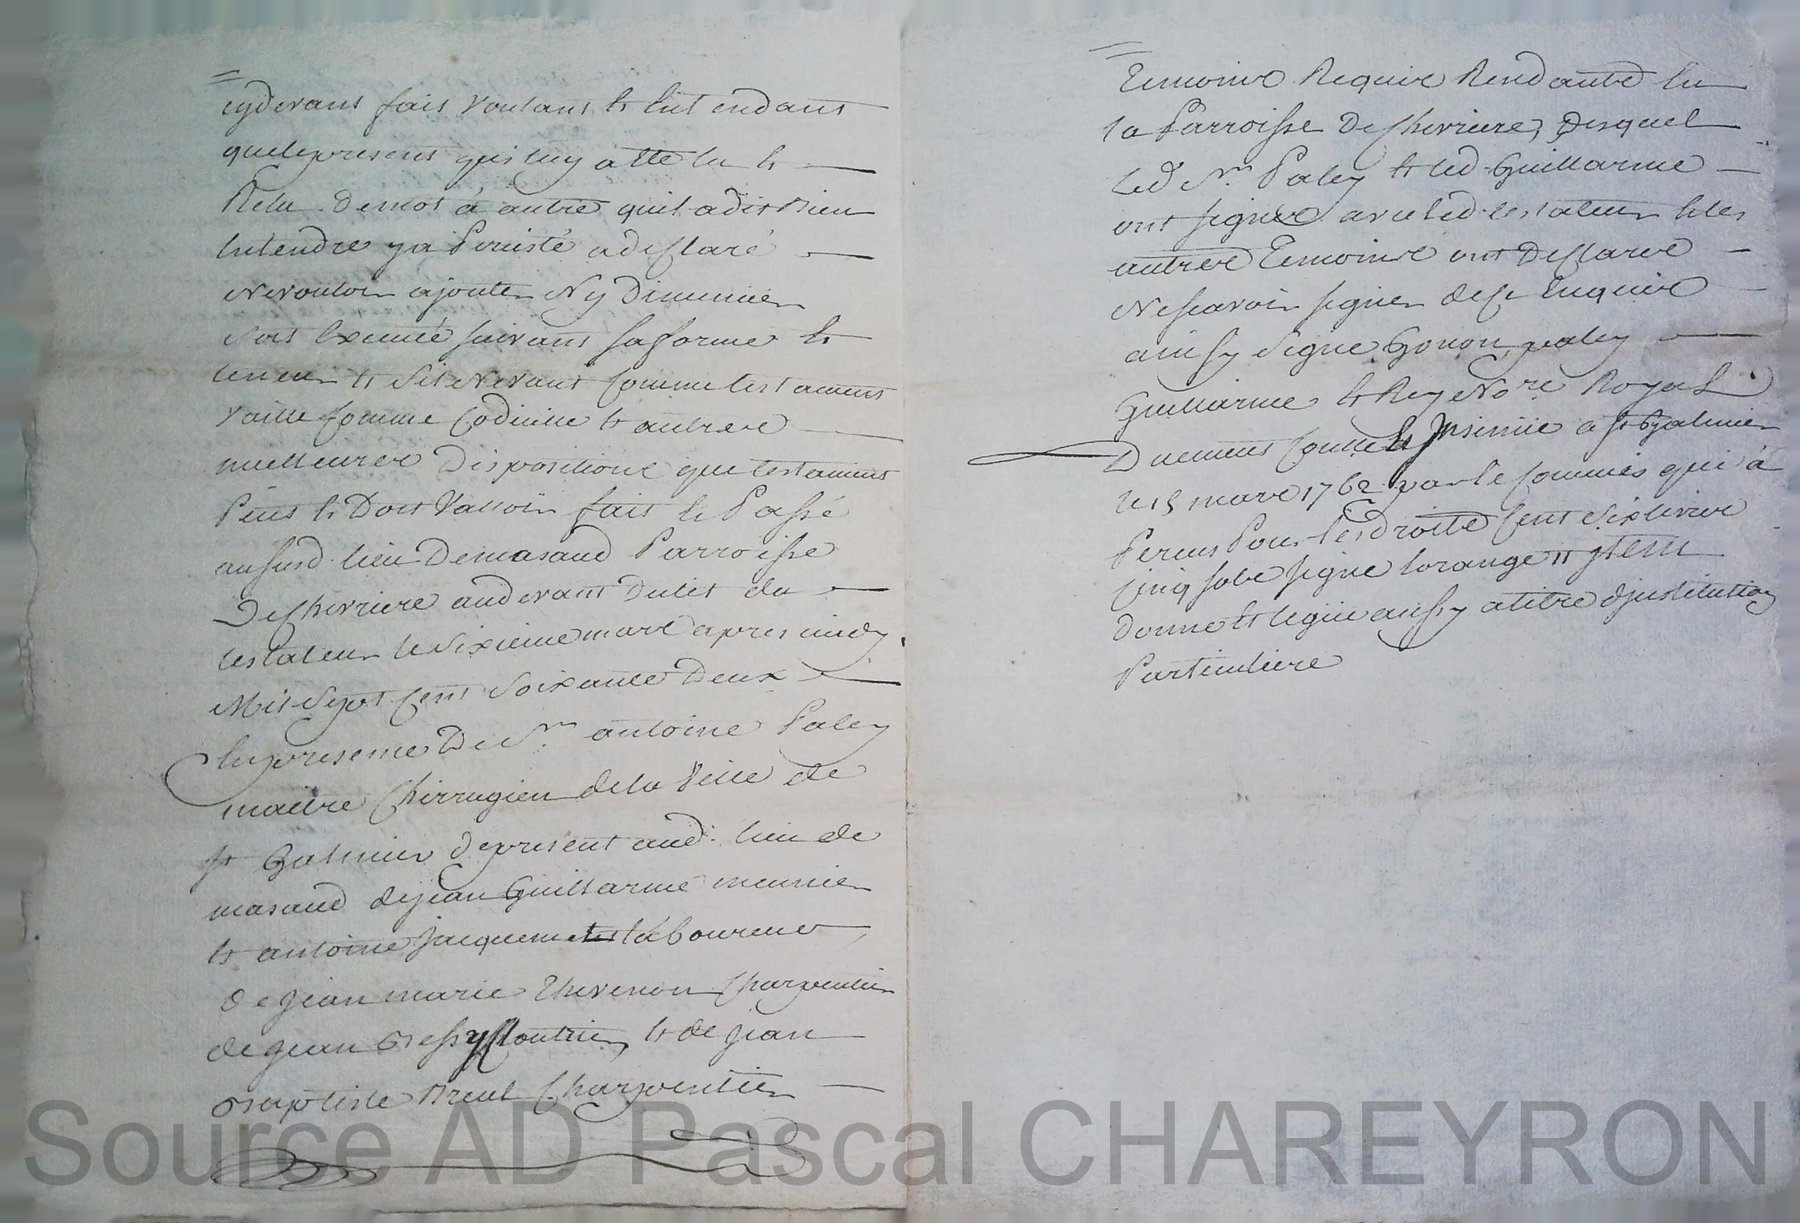 cydevant fait voulant et Entendant
que le present qui luy a Ette lu et
Relu de mot a autre quil a dit Bien
Entendre y a Persisté a desclaré
Ne vouloir ajouter Ny Diminuer
Soit Executé suivant sa forme et
teneur et sil Ne Vaut Comme testament
Vaille Comme Codicille et autres
meilleures Dispositions que testament
Peut et Doit Valloir fait et Passé
au susd. lieu De masaud Parroisse
De Chevriere audevant Du lit du
testateur le sixieme mars apres midy
Mil Sept Cent Soixante Deux
En presence De Sr. antoine Paley
maitre Chirrugien de la Ville de
St Galmier de present aud. lieu de
masaud de jean Guillarme meunier
et antoine jacquemet laboureur
de jean marie Thevenon Charpentier
de jean Bessy Cloutrier et de jean
Baptiste Breul Charpentier
Temoins Requis Residants En
la Parroisse De Chevriere, Desquel
Led Sr. Paley et led Guillarme
ont signés avec led testateur et les
autres Temoins ont Desclarés
Ne scavoir signer de ce Enquis
ainsy Signé Gonon, paley
Guillarme et Rey Nore. Royal
Duement Controllé Insinüé a St Galmier
le 15 mars 1762 par le Commis qui a
Percus Pour les droits Cent Six livres
Cinq sols signé lorange 11 Item
donne et legue aussy a titre d'justitution
Particuliere
Source AD Pascal CHAREYRON